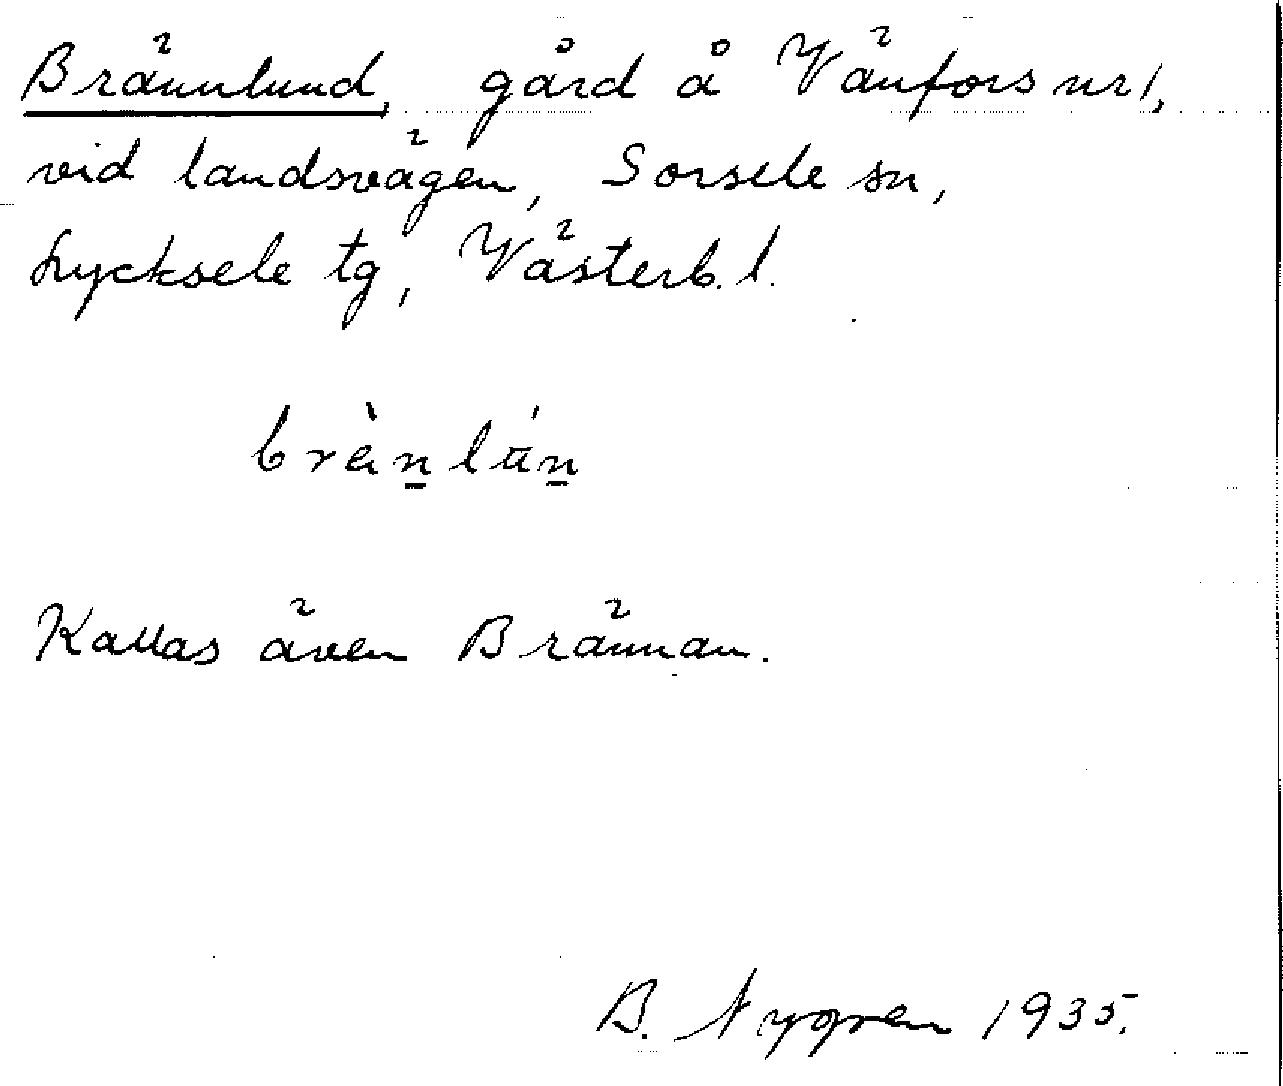 Brännlund, gård å Vänfors nr 1,
vid landsvägen, Sorsele sn,
Lycksele tg, Västerb. l.
Kallas även Brännan.
B. Nygren 1935.